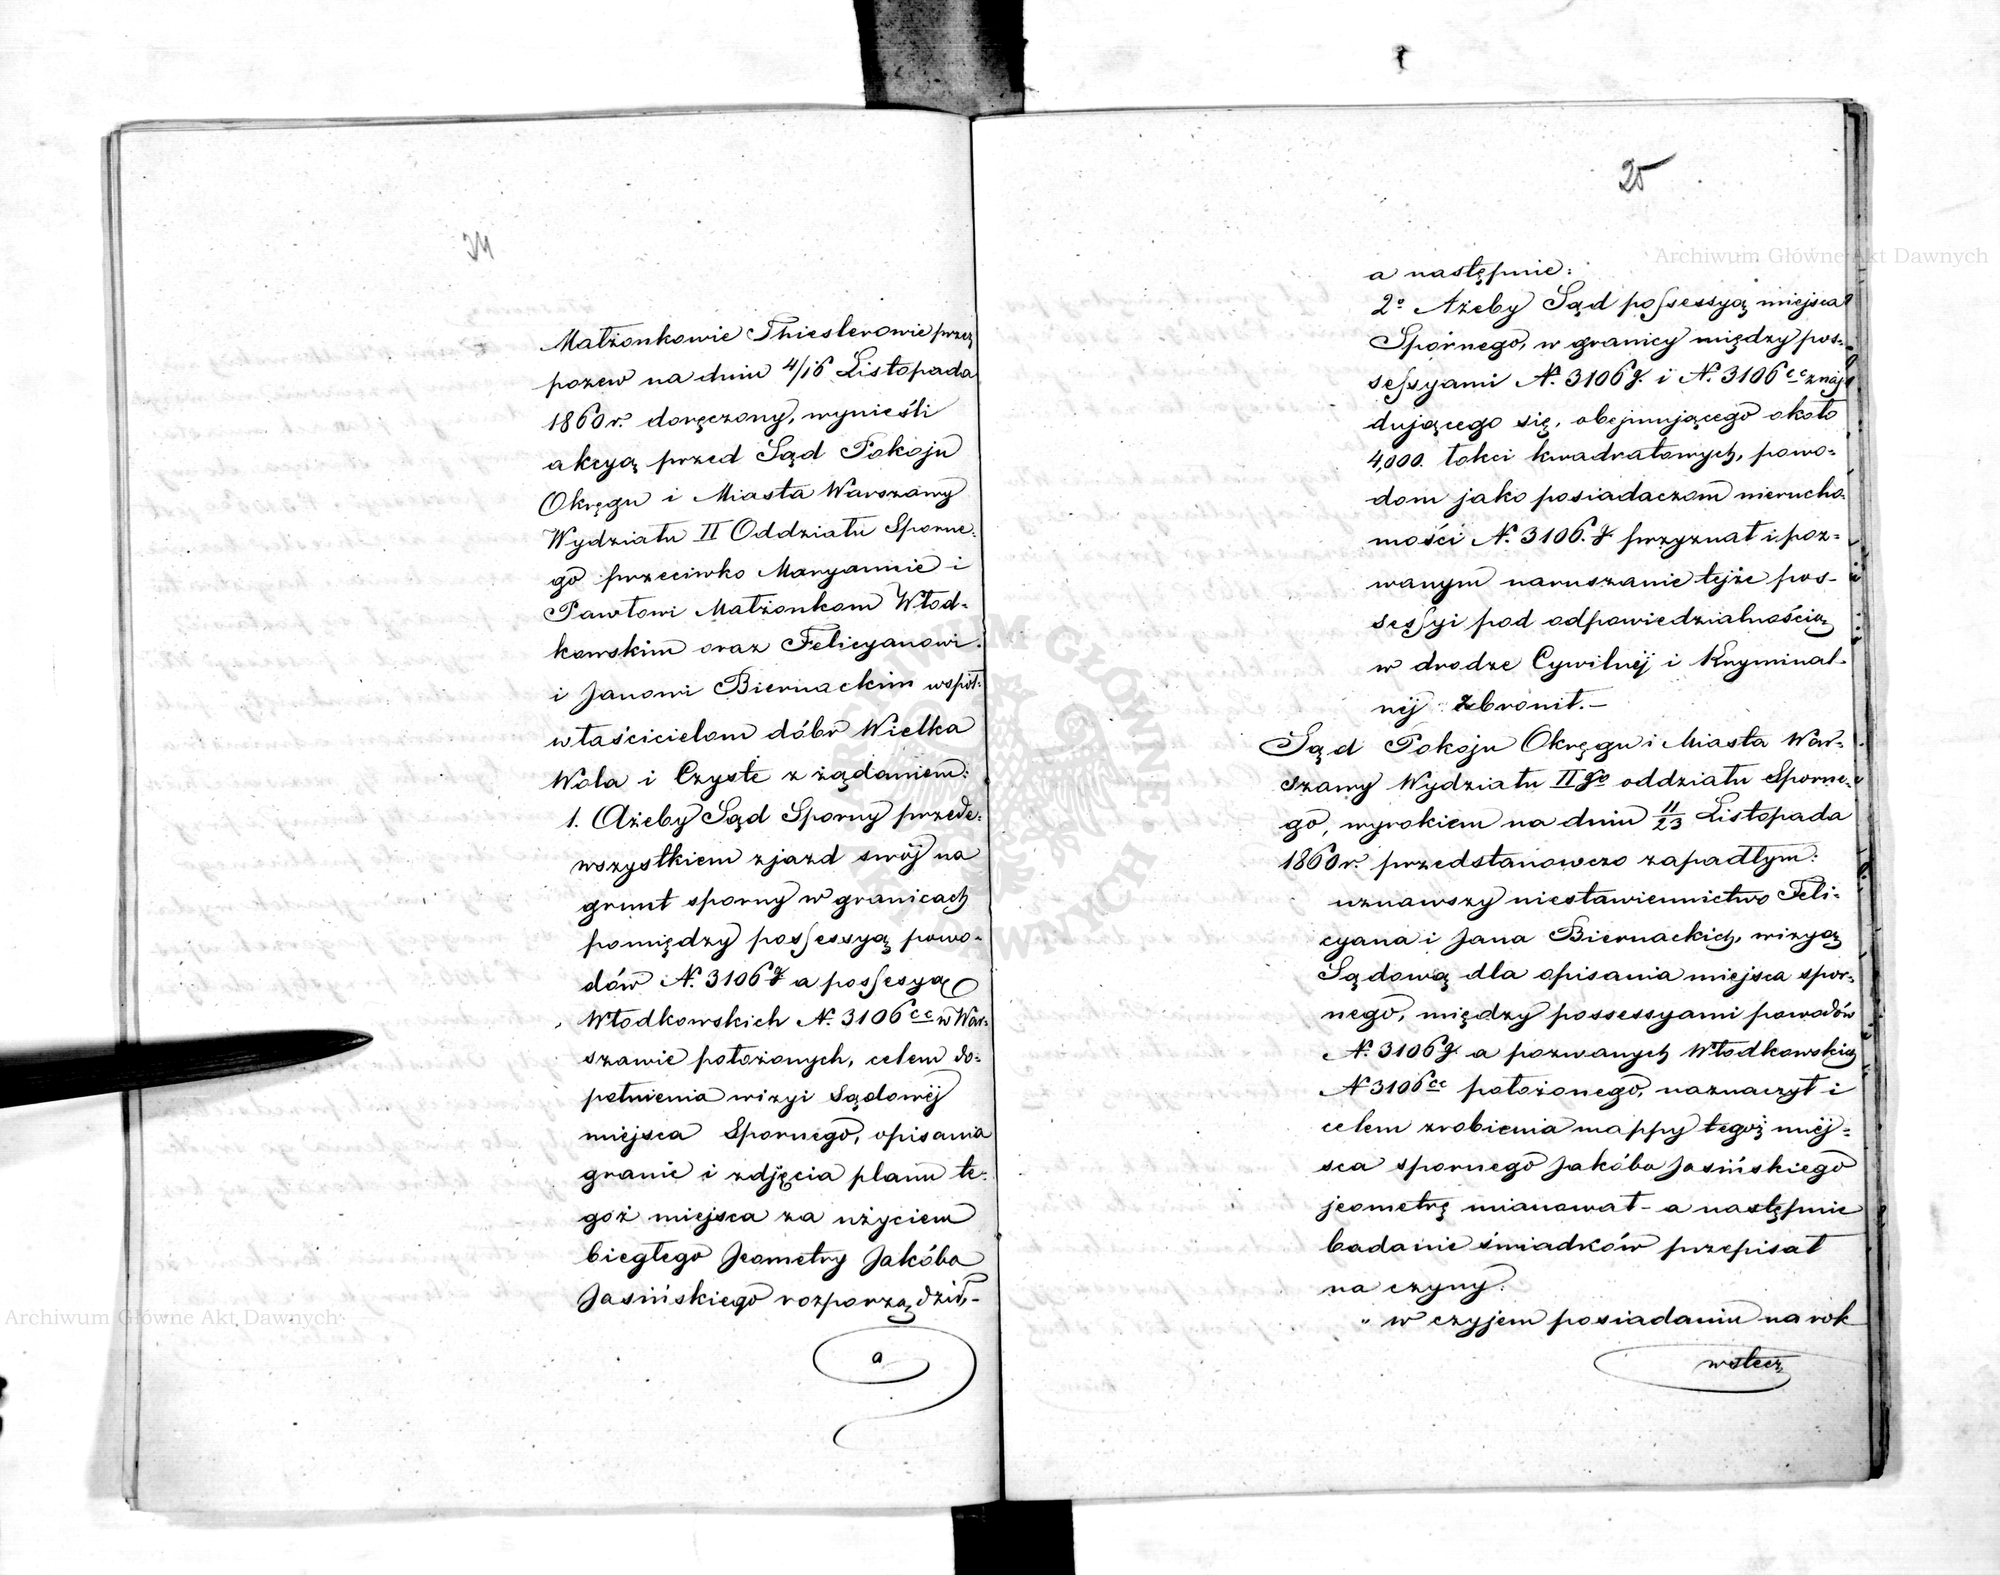 24
Małżonkowie Thieslerowie przez
pozew na dniu 4/16 Listopada
1860 r. doręczony, wynieśli
akcyą przed Sąd Pokoju
Okręgu i Miasta Warszawy
Wydziału II Oddziału Sporne-
go przeciwko Maryannie i
Pawłowi Małżonkom Włod-
kowskim oraz Felicyanowi
i Janowi Biernackim współ-
właścicielom dóbr Wielka
Wola i Czyste z żądaniem:
1. Ażeby Sąd Sporny przede-
wszystkiem zjazd swój na
grunt sporny w granicach
pomiędzy possessyą powo-
dów N. 3106 g a possesyą
Włodkowskich N. 3106 cc w War-
szawie położonych, celem do-
pełnienia wizyi Sądowéj
miejsca Spornego, opisania
granic i zdjęcia planu te-
goż miejsca za użyciem
biegłego Jeometry Jakóba
Jasińskiego rozporządził,-
a
25
a następnie:
2o Ażeby Sąd possessyą miejsca
Spornego, w granicy między pos-
sessyami N. 3106 g. i N. 3106 cc znaj-
dującego się, obejmującego około
4,000. łokci kwadratowych, powo-
dom jako posiadaczom nierucho-
mości N. 3106. g przyznał i poz-
wanym naruszanie tejże pos-
sessyi pod odpowiedzialnością
w drodze Cywilnéj i Kryminal-
néj zbronił.-
Sąd Pokoju Okręgu i Miasta War-
szawy Wydziału II go oddziału Sporne-
go, wyrokiem na dniu 11/23 Listopada
1860 r. przedstanowczo zapadłym:
uznawszy niestawiennictwo Feli-
cyana i Jana Biernackich, wizyą
Sądową dla opisania miejsca spor-
nego, między possessyami powodów
N. 3106 g a pozwanych Włodkowskich
N 3106 cc położonego, naznaczył i
celem zrobienia mappy tegoż miéj-
sca spornego Jakóba Jasińskiego
jeometrę mianował - a następnie
badanie świadków przepisał
na czyny:
" w czyjem posiadaniu na rok
wstecz
Archiwum Główne Akt Dawnych
Archiwum Główne Akt Dawnych
ARCHIWUM GŁÓWNE AKT DAWNYCH